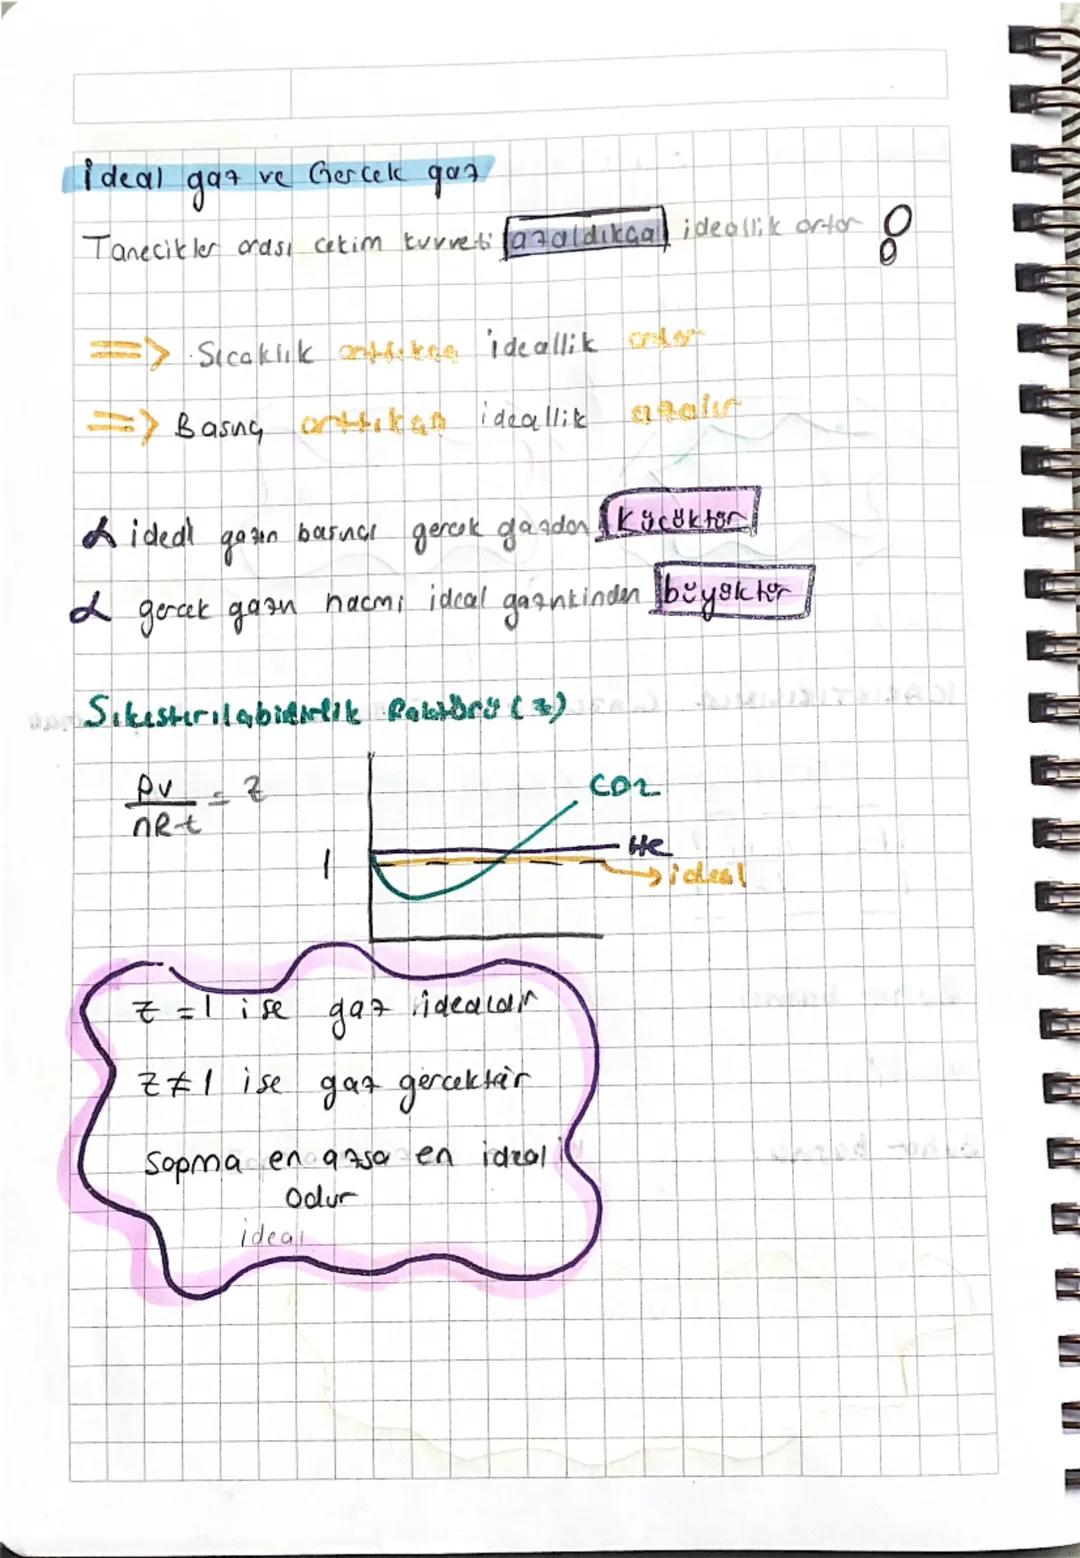 ideal gaz ve Gerçek gaz
Tanecikler arası çekim kuvveti azaldıkça ideallik artar
=> Sıcaklık arttıkça ideallik artar
=> Basınç arttıkça ideallik azalır
ideal gazın basıncı gerçek gazdan küçüktür
gerçek gazın hacmi ideal gazınkinden büyüktür
Sıkıştırılabidirlik Faktörü (z)
PV/nRt = z
CO2
He
1
ideal
z = 1 ise gaz idealdir
z ≠ 1 ise gaz gerçektir
Sapma en azsa en ideali
odur
ideal